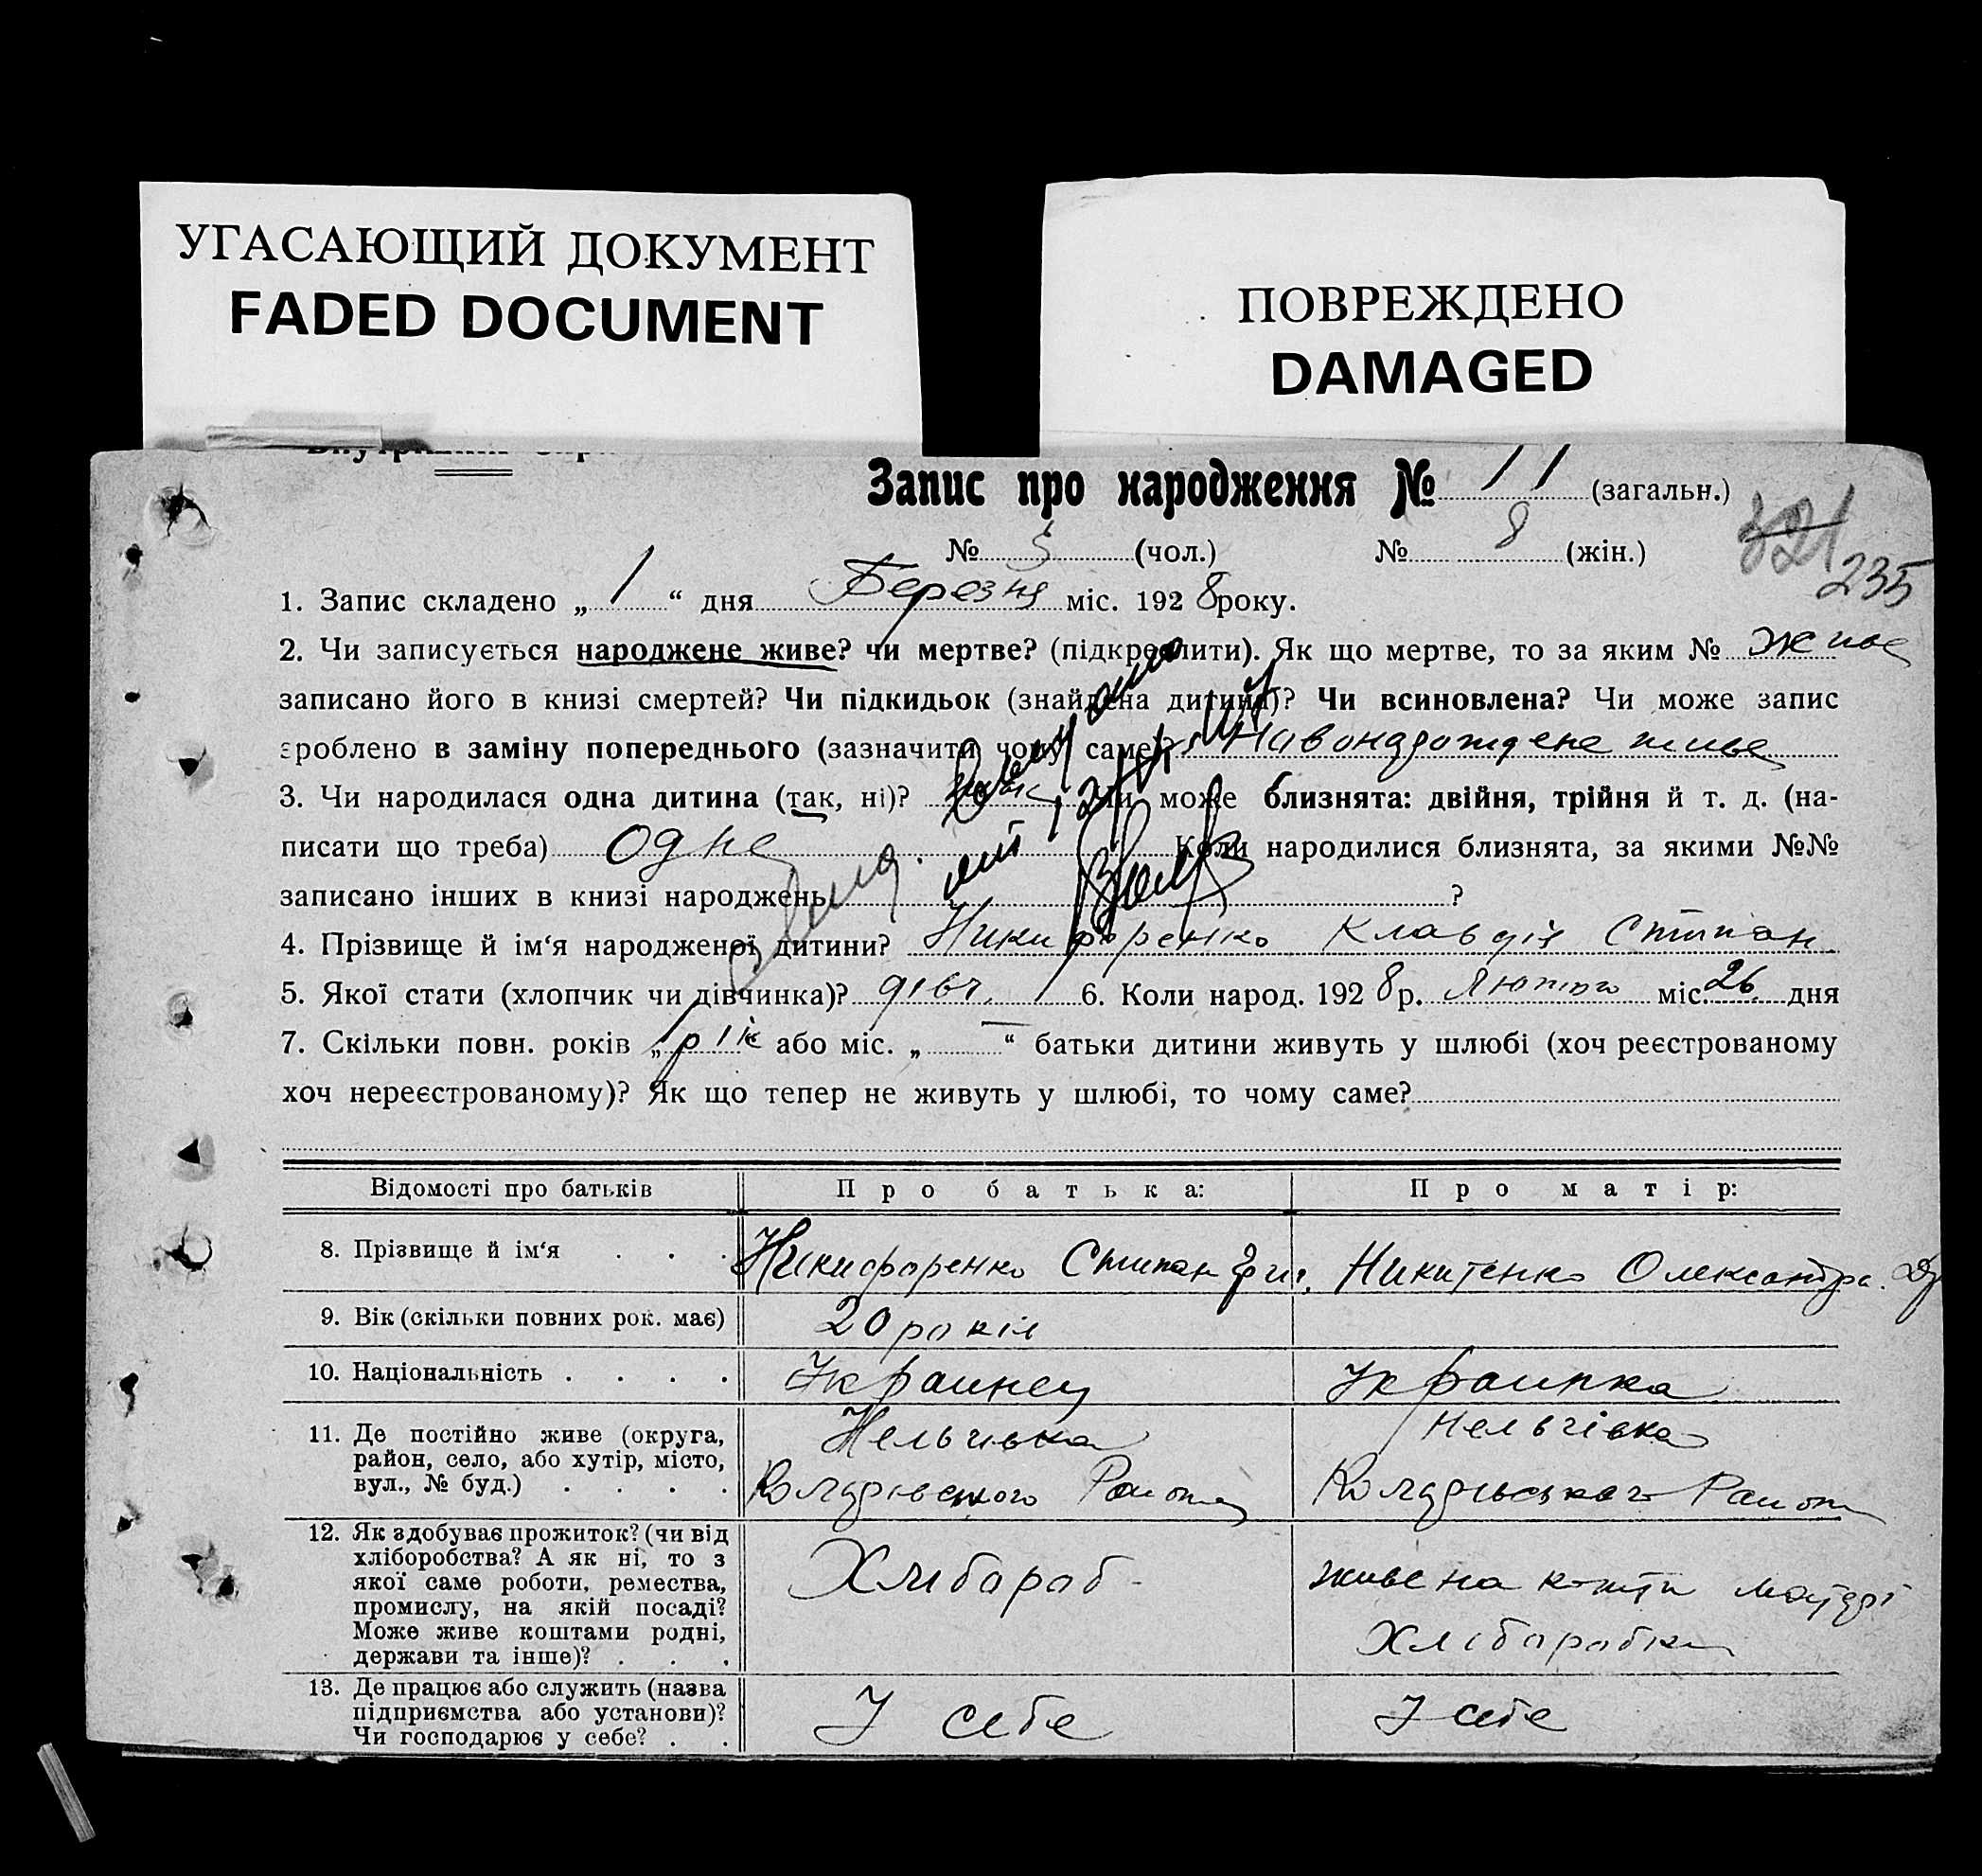 УГАСАЮЩИЙ ДОКУМЕНТ
FADED DOCUMENT
ПОВРЕЖДЕНО
DAMAGED
Запис про народження № 11 (загальн.)
№ 3 (чол.) № 8 (жін.)
321
235
1. Запис складено „ 1 “ дня Березня міс. 1928 року.
2. Чи записується народжене живе? чи мертве? (підкреслити). Як що мертве, то за яким № живе
записано його в книзі смертей? Чи підкидьок (знайдена дитина)? Чи всиновлена? Чи може запис
зроблено в заміну попереднього (зазначити чому саме)? живе
3. Чи народилася одна дитина (так, ні)? так Чи може близнята: двійня, трійня й т. д. (на-
писати що треба) Одне Коли народилися близнята, за якими №№
записано інших в книзі народжень ?
4. Прізвище й ім‘я народженої дитини? Никифоренко Клавдія Стипан
5. Якої стати (хлопчик чи дівчинка)? дівч. 6. Коли народ. 1928 р. Лютого міс. 26 дня
7. Скільки повн. років „ 1 рік або міс. „ — “ батьки дитини живуть у шлюбі (хоч реєстрованому
хоч нереєстрованому)? Як що тепер не живуть у шлюбі, то чому саме?
Відомості про батьків Про батька: Про матір:
8. Прізвище й ім‘я Никифоренко Стипан Никитенко Олександра
9. Вік (скільки повних рок. має) 20 років
10. Національність Украинец Украинка
11. Де постійно живе (округа,
район, село, або хутір, місто,
вул., № буд.)
Нельгивка
Района
Нельгівка
Района
12. Як здобуває прожиток? (чи від
хліборобства? А як ні, то з
якої саме роботи, ремества,
промислу, на якій посаді?
Може живе коштами родні,
держави та інше)?
Хлибароб
живе на кошти
Хлібаробка
13. Де працює або служить (назва
підприємства або установи)?
Чи господарює у себе?
У себе
У себе